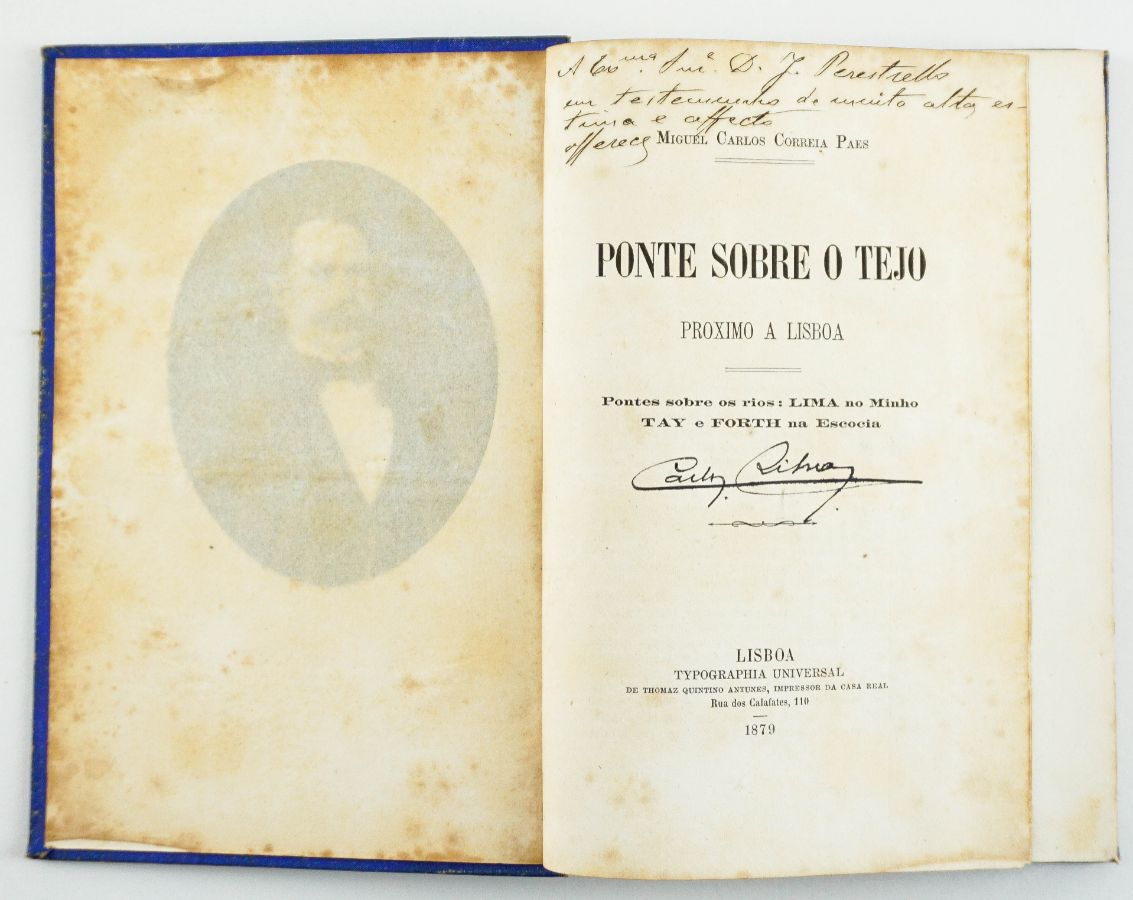 A Exma. Snra. D. J. Perestrello
em testemunho de muito alta es-
tima e affecto
offerece
MIGUEL CARLOS CORREIA PAES
PONTE SOBRE O TEJO
PROXIMO A LISBOA
Pontes sobre os rios: LIMA no Minho
TAY e FORTH na Escocia
LISBOA
TYPOGRAPHIA UNIVERSAL
DE THOMAZ QUINTINO ANTUNES, IMPRESSOR DA CASA REAL
Rua dos Calafates, 110
1879